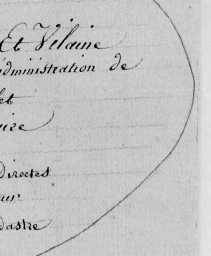 Et Vilaine
administration de
et
Directes
eur
dastre